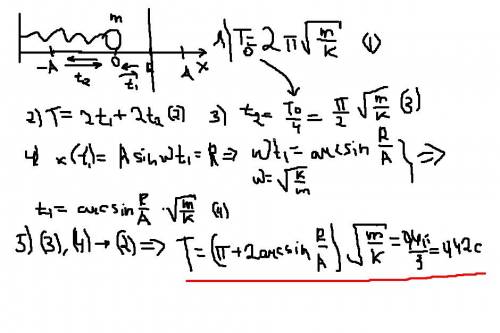 m
1) T₀ = 2π√(m/k) (1)
-A t₂ 0 t₁ R A x
2) T = 2t₁ + 2t₂ (2) 3) t₂ = T₀/4 = π/2 √(m/k) (3)
4) x(t₁) = A sin ωt₁ = R ⇒ ωt₁ = arcsin R/A } ⇒
ω = √(k/m)
t₁ = arcsin R/A · √(m/k) (4)
5) (3), (4) → (2) ⇒ T = (π + 2 arcsin R/A) √(m/k) = = 4,42 c